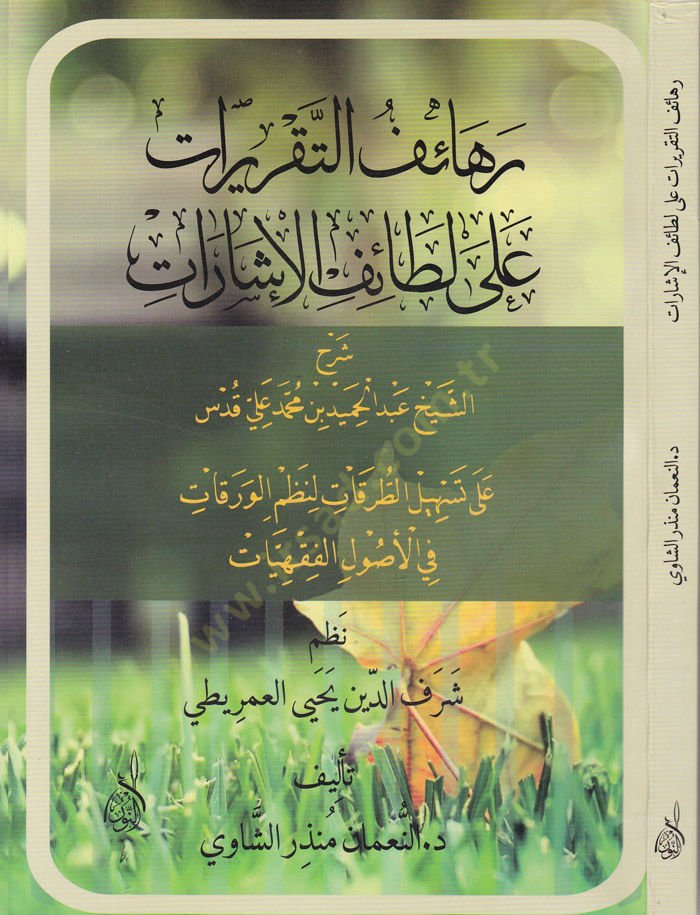 رَهَائِفُ التَّقْرِيرَات
عَلَى لَطَائِفِ الإِشَارَاتِ
شَرْح
الشَّيْخ عَبْد الحَمِيدِ بْنِ مُحَمَّد عَلِيّ قُدْس
عَلَى تَسْهِيلِ الطُّرُقَاتِ لِنَظْمِ الوَرَقَاتِ
فِي الأُصُولِ الفِقْهِيَّات
نَظْم
شَرَف الدِّين يَحْيَى العمريطي
تأليف
د. النُّعمان مُنْذِر الشَّاوي
النور
www.
.com.tr
رهائف التقريرات على لطائف الإشارات
د. النعمان منذر الشاوي
النور